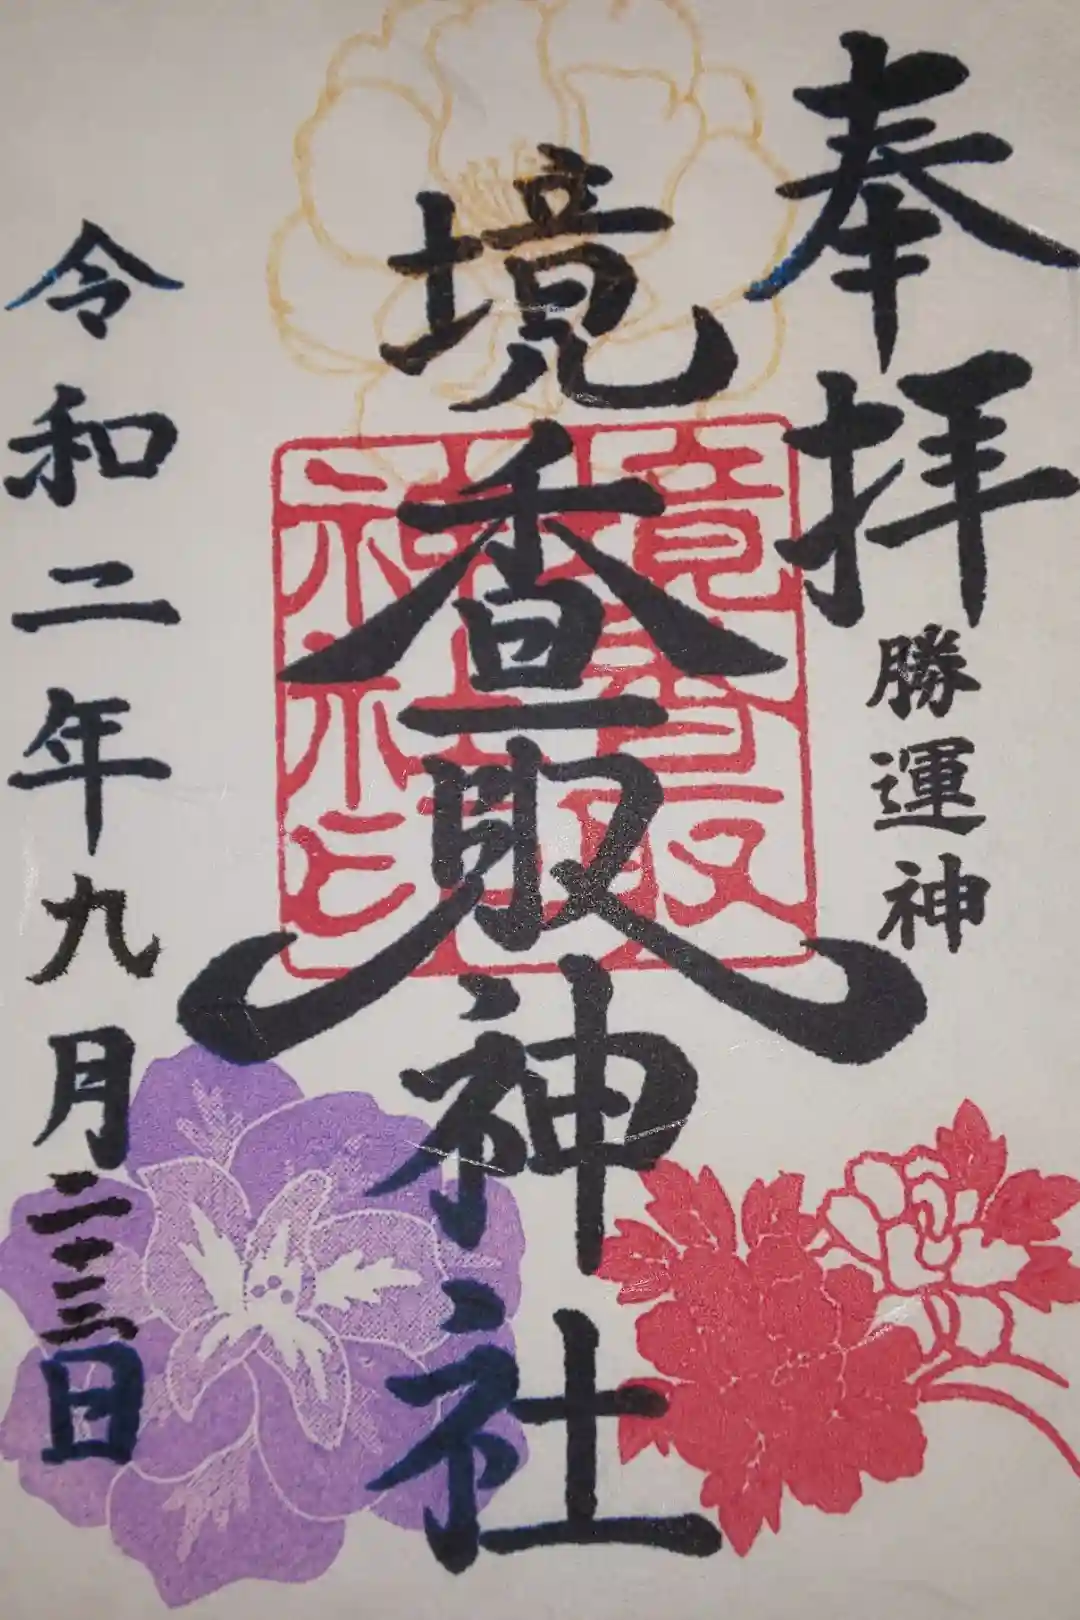 奉拝
勝運神
境香取神社
境香取
神社印
令和二年九月二十三日